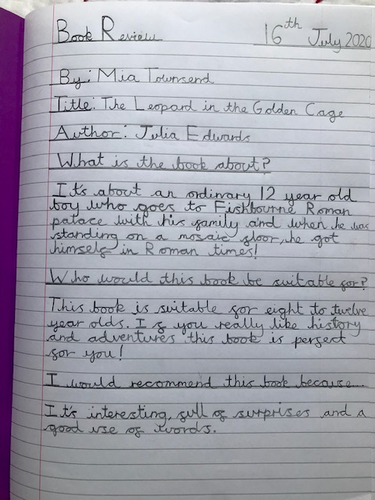 Book Review 16th July 2020
By: Mia Townsend
Title: The Leopard in the Golden Cage
Author: Julia Edwards
What is the book about?
It's about an ordinary 12 year old
boy who goes to Fishbourne Roman
palace with his family and when he was
standing on a mosaic floor, he got
himself in Roman times!
Who would this book be suitable for?
This book is suitable for eight to twelve
year olds. If you really like history
and adventures this book is perfect
for you!
I would recommend this book because...
It's interesting, full of surprises and a
good use of words.